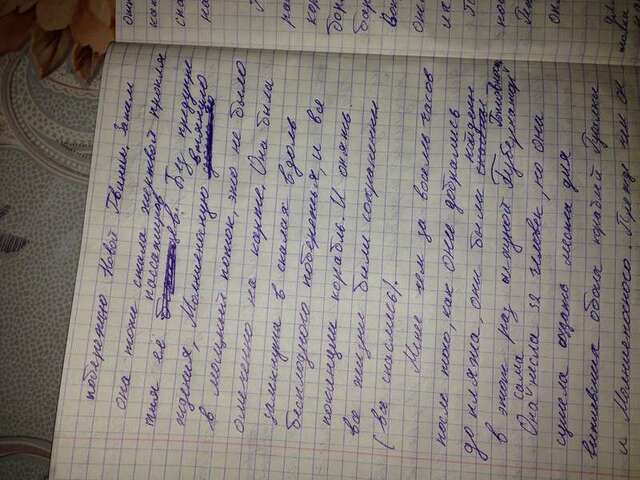 побережью Новой Гвинеи. Затем
она тоже стала жертвой прокля
тия её пассажиров цев. Без предупре
ждения, Молниеносную втянуло
в мощный поток, это не было
отмеченно на карте. Она была
замкнута в скалах вдоль
бесплодного побережья, и все
покинули корабль. И опять
все жизни были сохраненны
(все спаслись).
Менее чем за восемь часов
после того, как они добрались
до пляжа, они были найдены
в этот раз шхуной Губернатор Готовность
Она сама несла 32 человек, но они
сумела создать места для
выживших обоих кораблей
и Молниеносного. Прежде чем он